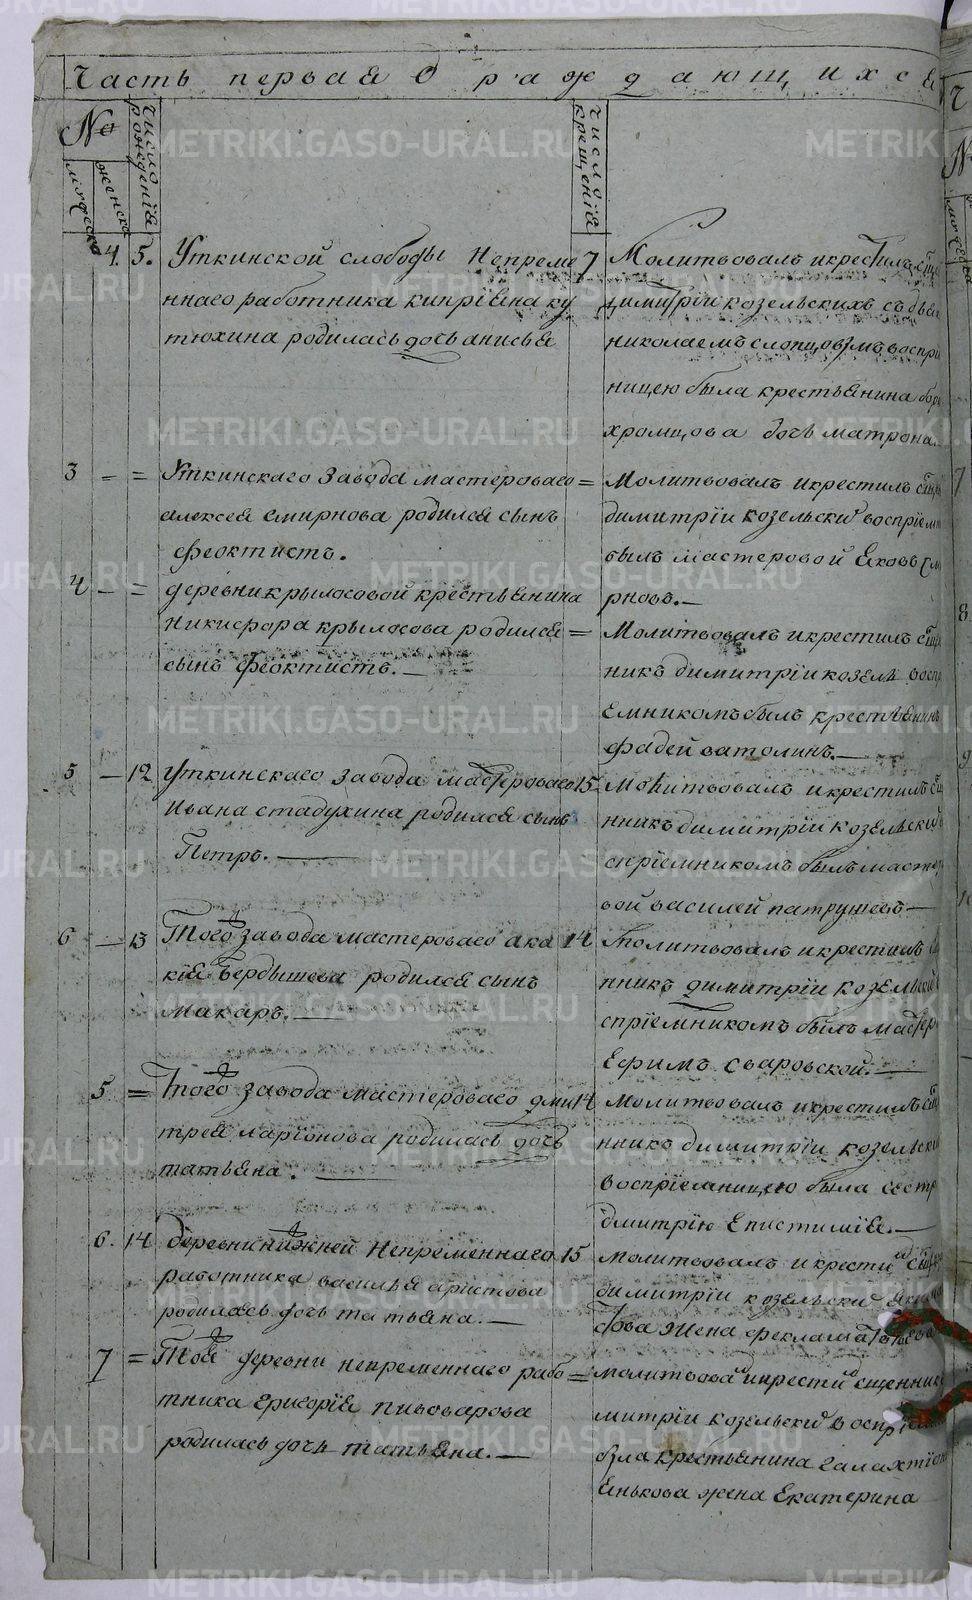 Часть первая О раждающихся
№
мужеска
женска
число рождения
число крещения
4. 5. Уткинской слободы Непреме 7
ннаго работника кипрїена ку
тюхина родилась дочь анисья
Молитвовалъ икрестилъ сще
димитрїи козельскихъ съ дья
николаемъ слопцовымъ воспри
ницею была крестьянина бори
хромцова дочь матрона.
3 - = Уткинскаго Завода мастероваго =
алексея смирнова родился сынъ
феоктистъ.
Молитвовалъ икрестилъ сщен
димитрїи козельски воспрїем
былъ мастеровой Яковъ См
рновъ.—
4 - = деревни крылосовой крестьянина
Никифора крылосова родился =
сынъ феоктистъ.—
Молитвовалъ икрестилъ сще
никъ димитрїи козелъ восп
емникомъ былъ крестьянинъ
фадей ватолинъ.—
5 — 12 Уткинскаго завода мастероваго 15
Ивана стадухина родился сынъ
Петръ.—
Молитвовалъ икрестилъ сщ
нникъ димитрїи козельский
спрїемникомъ былъ масте
вой василей патрушевъ—
6 — 13 Тогожъ завода мастероваго ака 14
кїя Бердышева родился сынъ
макаръ.—
Молитвовалъ икрестилъ
нникъ димитрїи козельский
спрїемникомъ былъ мастер
Ефимъ Сваровской.—
5 = Тогожъ завода мастероваго дми 14
трея ларїонова родилась дочь
татьяна.—
молитвовалъ икрестилъ сщ
нникъ димитрїи козельски
воспрїемницею была сестр
дмитрїю Епистимїя.—
6. 14 деревни нижней непременнаго 15
работника василья аристова
родилась дочь татьяна.—
молитвовалъ икрестилъ сще
димитрїи козельски
това жена фекла матвеева
7 = Тояжъ деревни непременнаго рабо =
тника григорїя пивоварова
родилась дочь татьяна.—
молитвовалъ икрестилъ сщенникъ
митрїи козельски воспрїем
была крестьянина галахтїона
Енькова жена Екатерина
7
8
9
METRIKI.GASO-URAL.RU